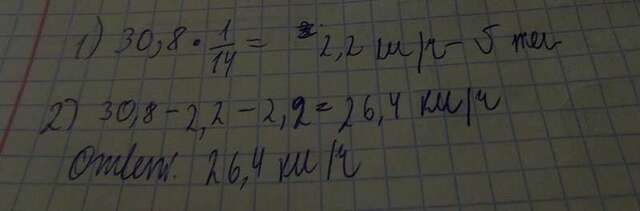 1) 30,8 · 1/14 = 2,2 км/ч - 𝑣 теч
2) 30,8 - 2,2 - 2,2 = 26,4 км/ч
Ответ. 26,4 км/ч